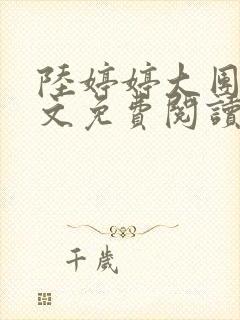 陸婷婷大團
文免費閱讀
千歲